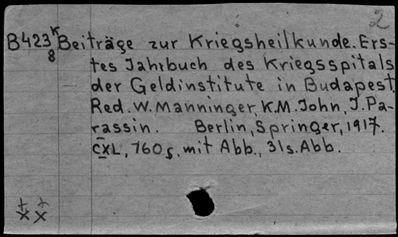 2
B423 K Beiträge zur Kriegsheilkunde. Ers-
8 tes Jahrbuch des Kriegsspitals
der Geldinstitute in Budapest
Red. W. Manninger, K.M. John, J. Pa-
rassin. Berlin, Springer, 1917.
CXL, 760 s. mit Abb., 31 s. Abb.